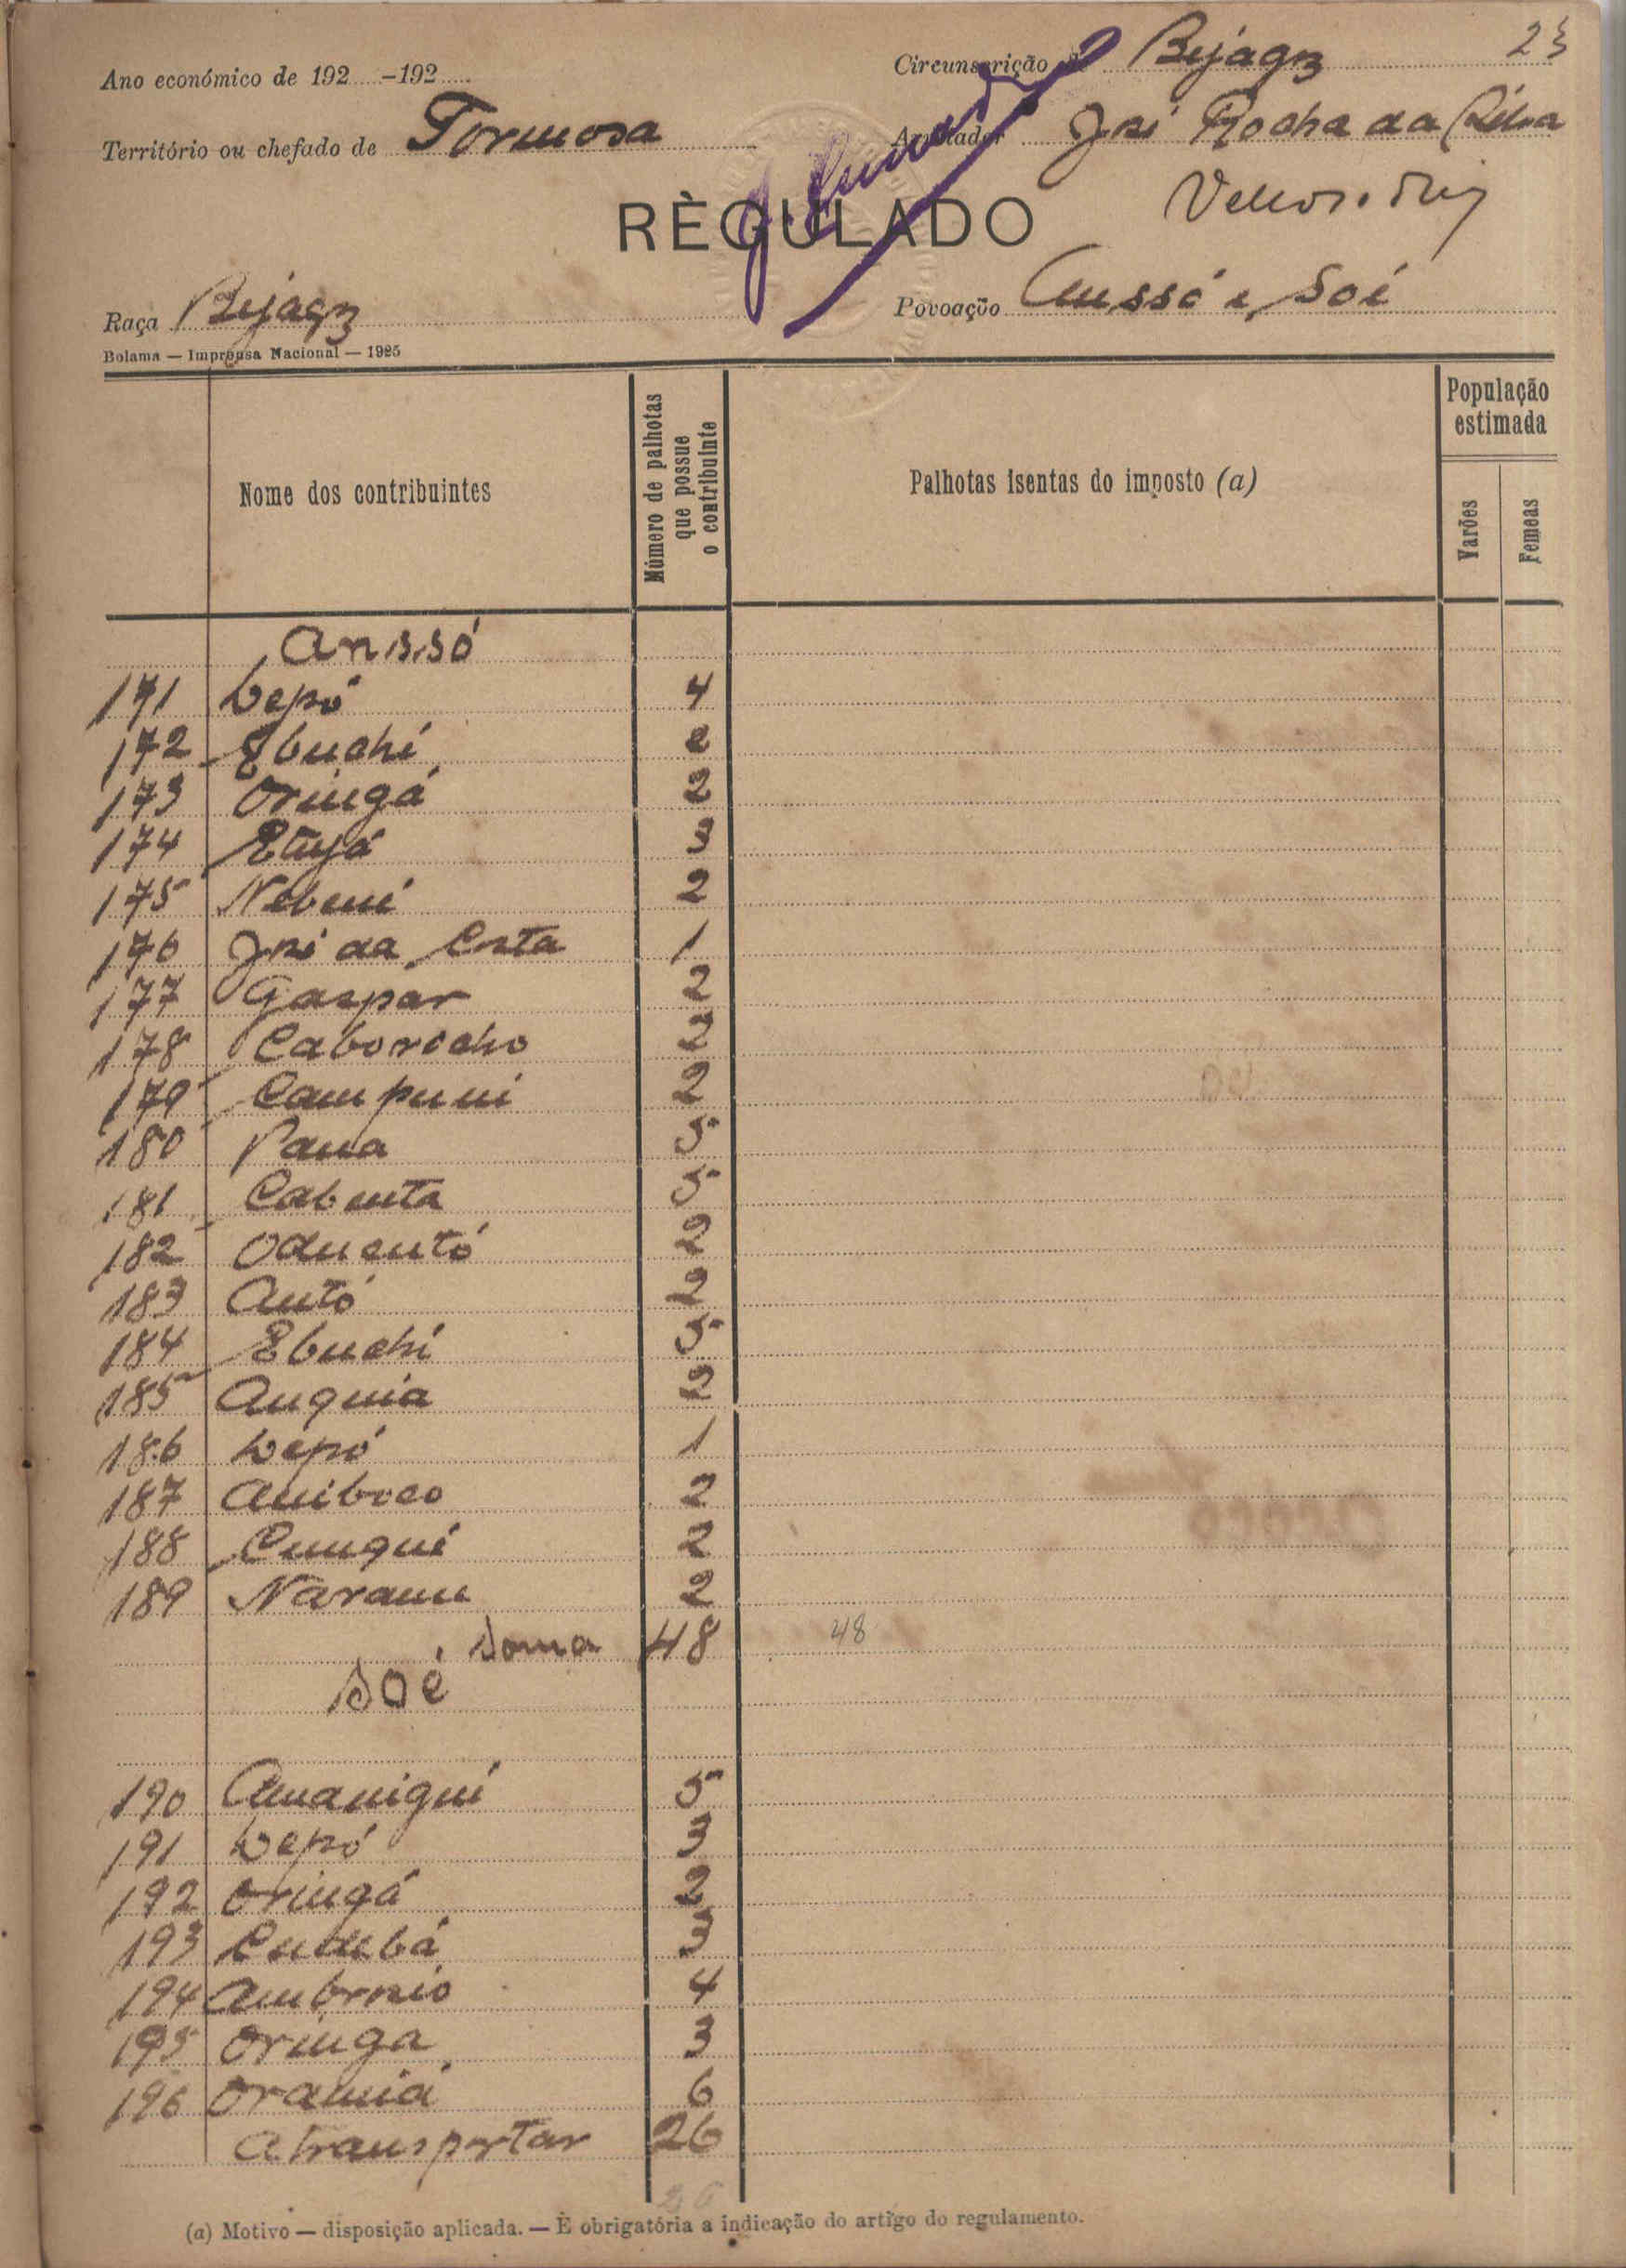 23
Ano económico de 192 -192
Circunscrição Bijagoz
Território ou chefado de Formosa
Arrolador José Rocha da Silva
RÈGULADO
Raça Bijagoz
Povoação Anssó e Soé
Bolama — Imprensa Nacional — 1925
Nome dos contribuintes
Número de palhotas que possue o contribuinte
Palhotas isentas do imposto (a)
População estimada
Varões
Femeas
Anssó
171 Depó 4
172 Ebuchi 2
173 Oringá 2
174 Etuyá 3
175 Nebené 2
176 José da Costa 1
177 Gaspar 2
178 Caborocho 2
179 Campuni 2
180 Pana 5
181 Cabenta 5
182 2
183 Antó 2
184 Ebuchi 5
185 Anquia 2
186 Depó 1
187 Aniboco 2
188 Cunqué 2
189 Naranu 2
Soma 48 48
Soé
190 Amanigui 5
191 Depó 3
192 Oringá 2
193 3
194 Ambrosio 4
195 Oringa 3
196 Oramiá 6
A transportar 26
(a) Motivo — disposição aplicada. — È obrigatória a indicação do artigo do regulamento.